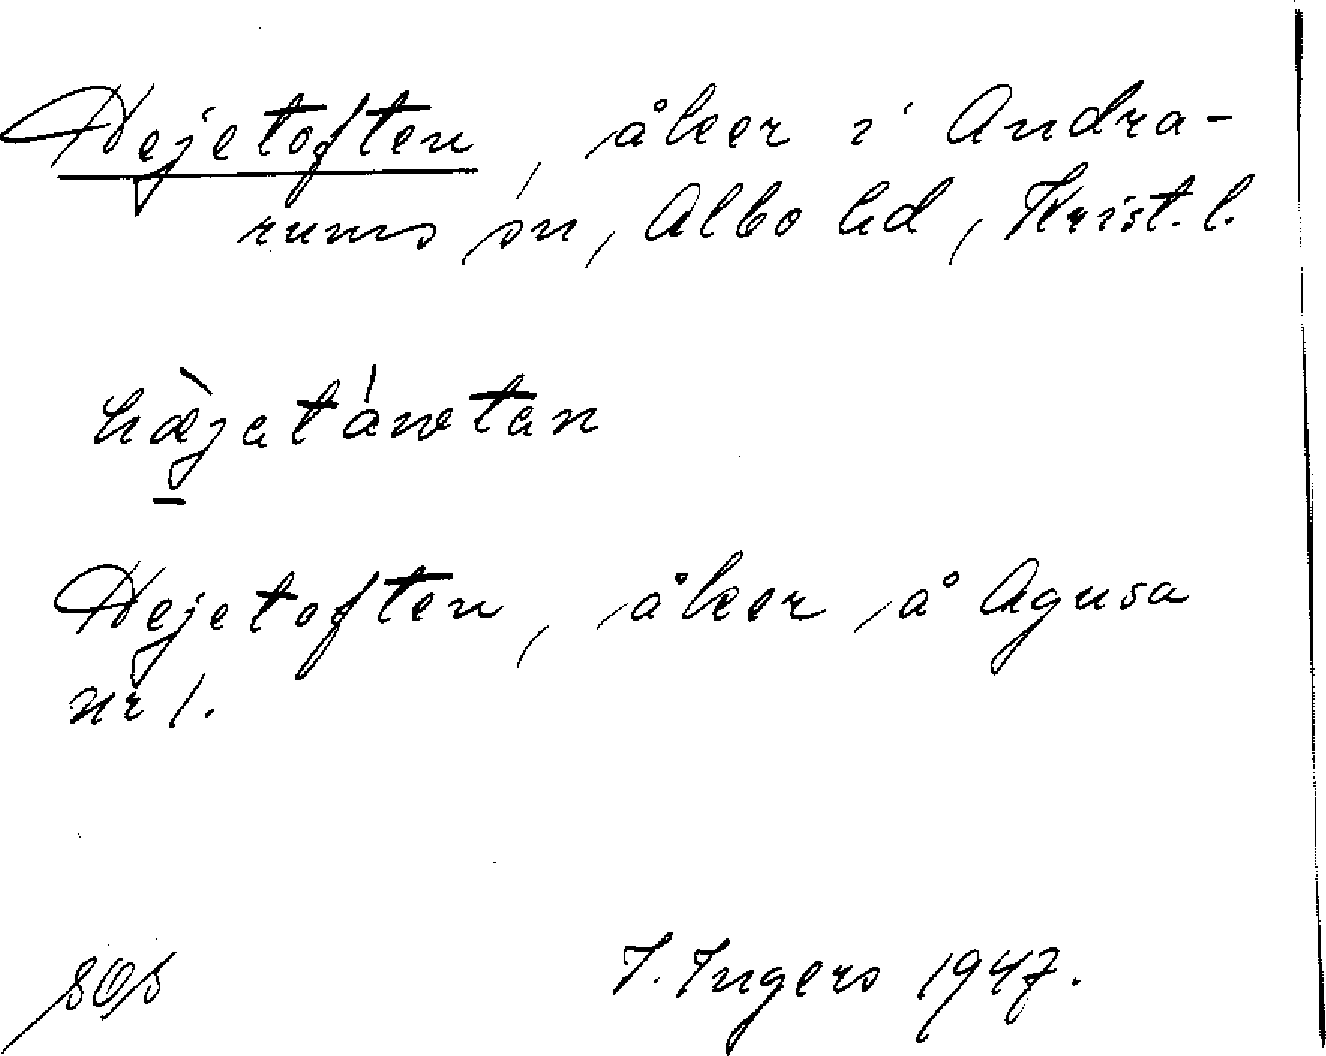 Hejetoften, åker i Andra-
rums sn, Albo hd, Krist. l.
hæ̀jatáwtan
Hejetoften, åker å Agusa
nr 1.
I. Ingers 1947.